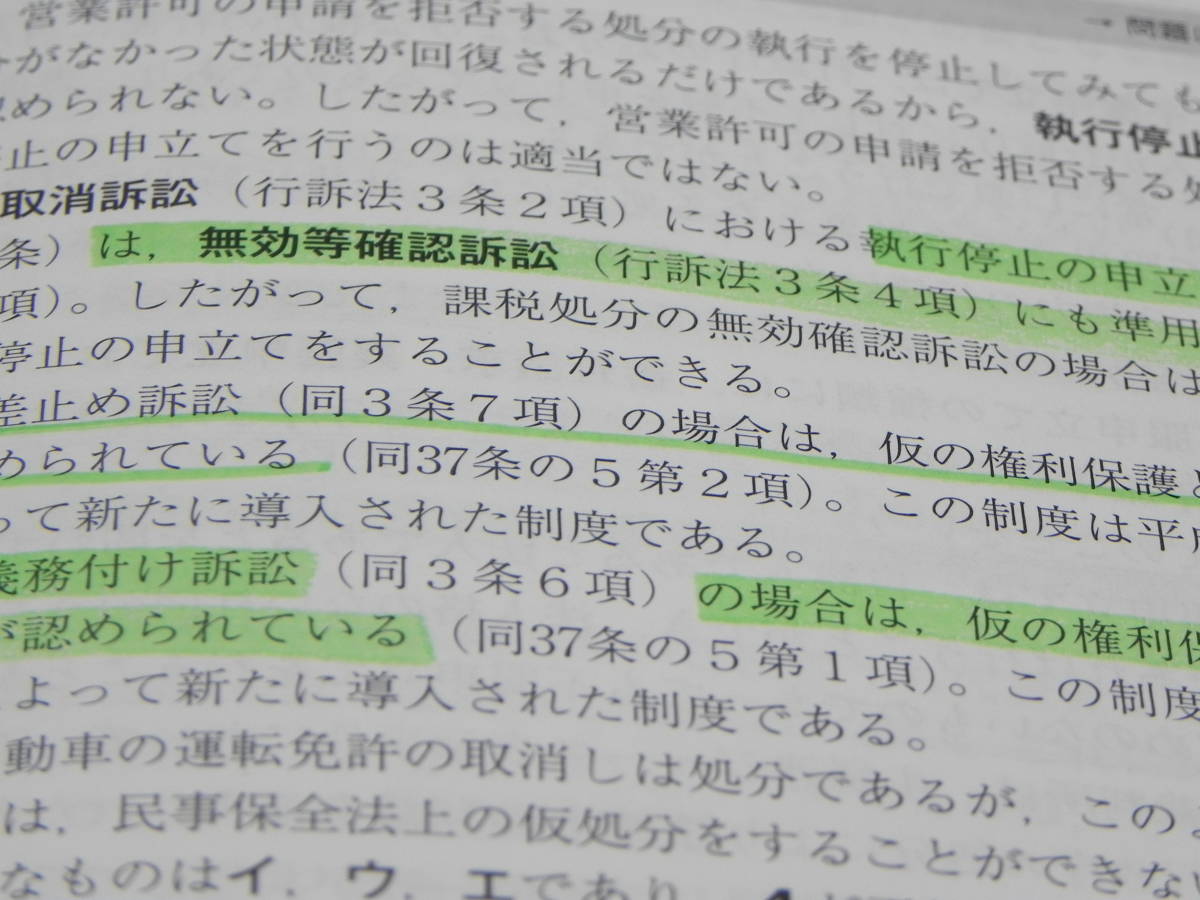 → 問題
営業許可の申請を拒否する処分の執行を停止してみても
がなかった状態が回復されるだけであるから，執行停止
められない。したがって，営業許可の申請を拒否する処
止の申立てを行うのは適当ではない。
取消訴訟（行訴法３条２項）における執行停止の申立
条）は，無効等確認訴訟（行訴法３条４項）にも準用
項）。したがって，課税処分の無効確認訴訟の場合は
停止の申立てをすることができる。
差止め訴訟（同３条７項）の場合は，仮の権利保護と
められている（同37条の５第２項）。この制度は平成
って新たに導入された制度である。
義務付け訴訟（同３条６項）の場合は，仮の権利保
が認められている（同37条の５第１項）。この制度
よって新たに導入された制度である。
動車の運転免許の取消しは処分であるが，この
は，民事保全法上の仮処分をすることができない
なものはイ，ウ，エであり，